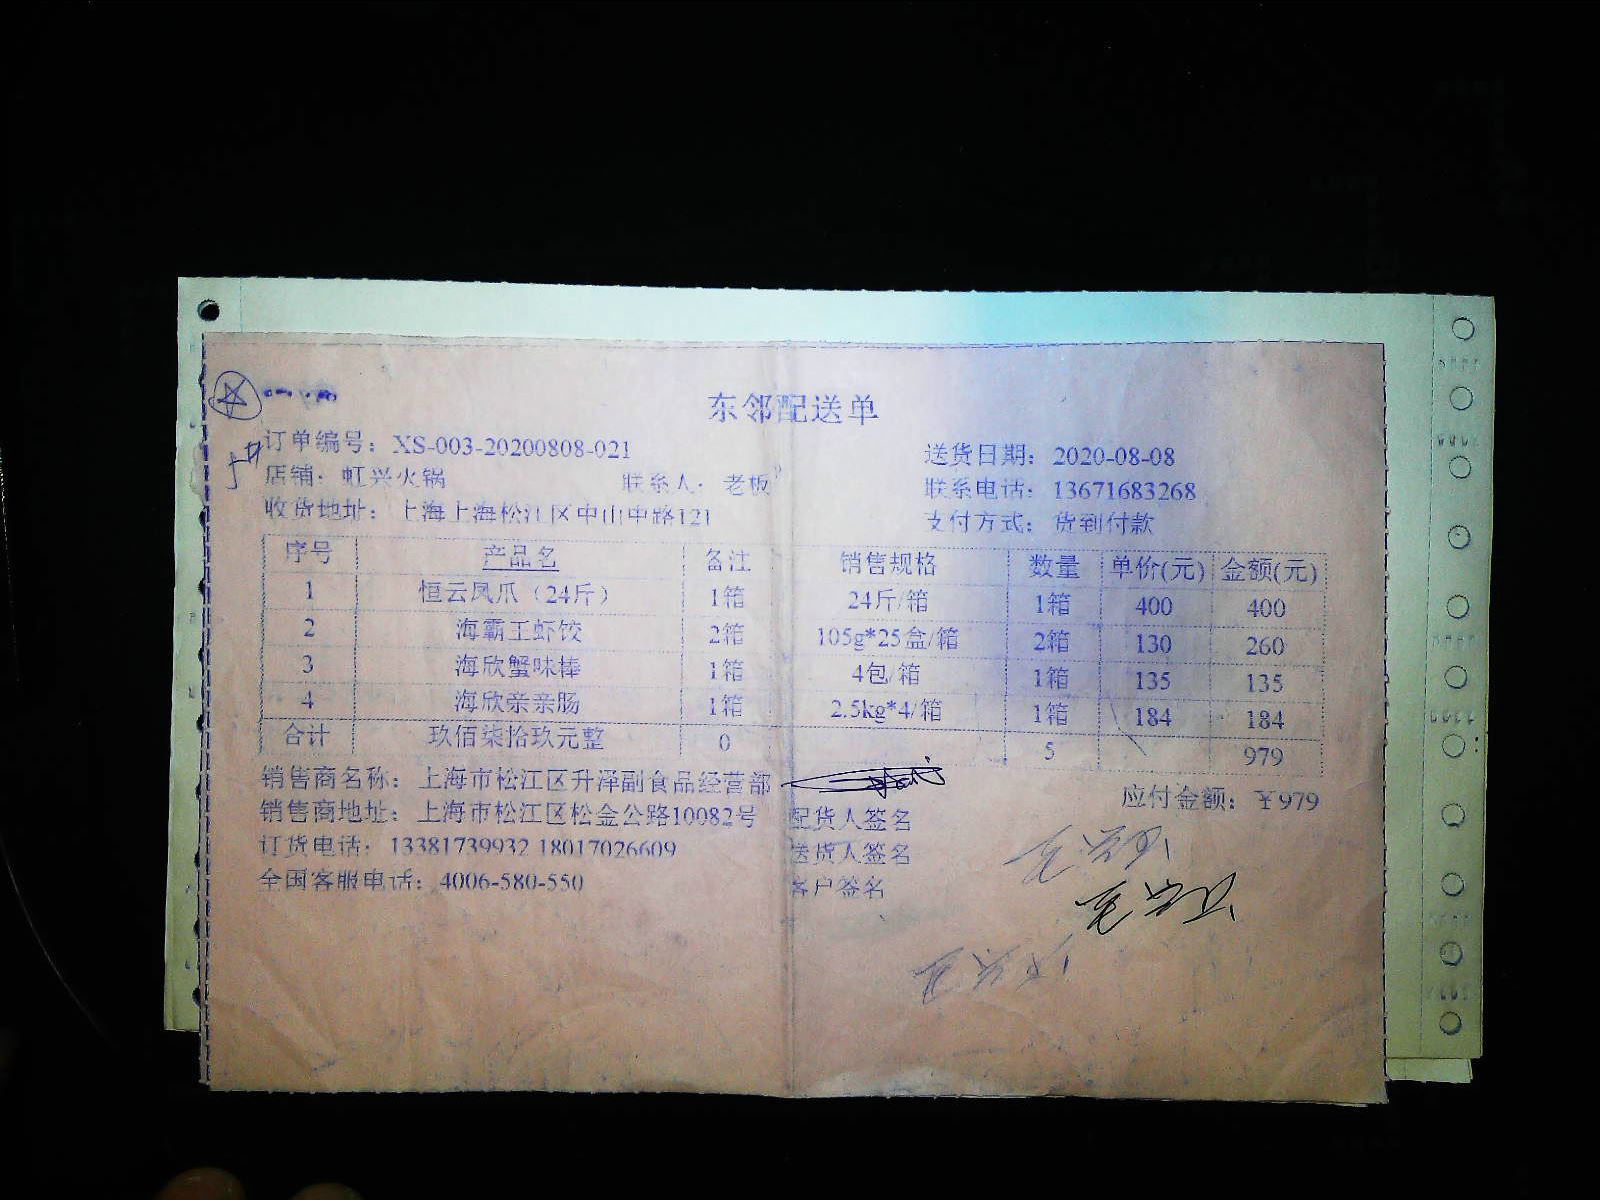 东邻配送单
订单编号：XS-003-20200808-021 送货日期：2020-08-08
店铺：虹兴火锅 联系人：老板 联系电话：13671683268
收货地址：上海上海松江区中山中路121 支付方式：货到付款
序号 产品名 备注 销售规格 数量 单价(元) 金额(元)
1 恒云凤爪（24斤） 1箱 24斤/箱 1箱 400 400
2 海霸王虾饺 2箱 105g*25盒/箱 2箱 130 260
3 海欣蟹味棒 1箱 4包/箱 1箱 135 135
4 海欣亲亲肠 1箱 2.5kg*4/箱 1箱 184 184
合计 玖佰柒拾玖元整 0 5 979
销售商名称：上海市松江区升泽副食品经营部 应付金额：￥979
销售商地址：上海市松江区松金公路10082号 配货人签名
订货电话：13381739932 18017026609 送货人签名
全国客服电话：4006-580-550 客户签名